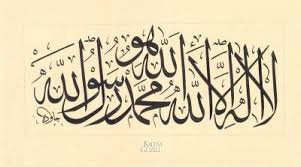 هو
لا اله الا الله محمد رسول الله
KALEM
GÜZELİ